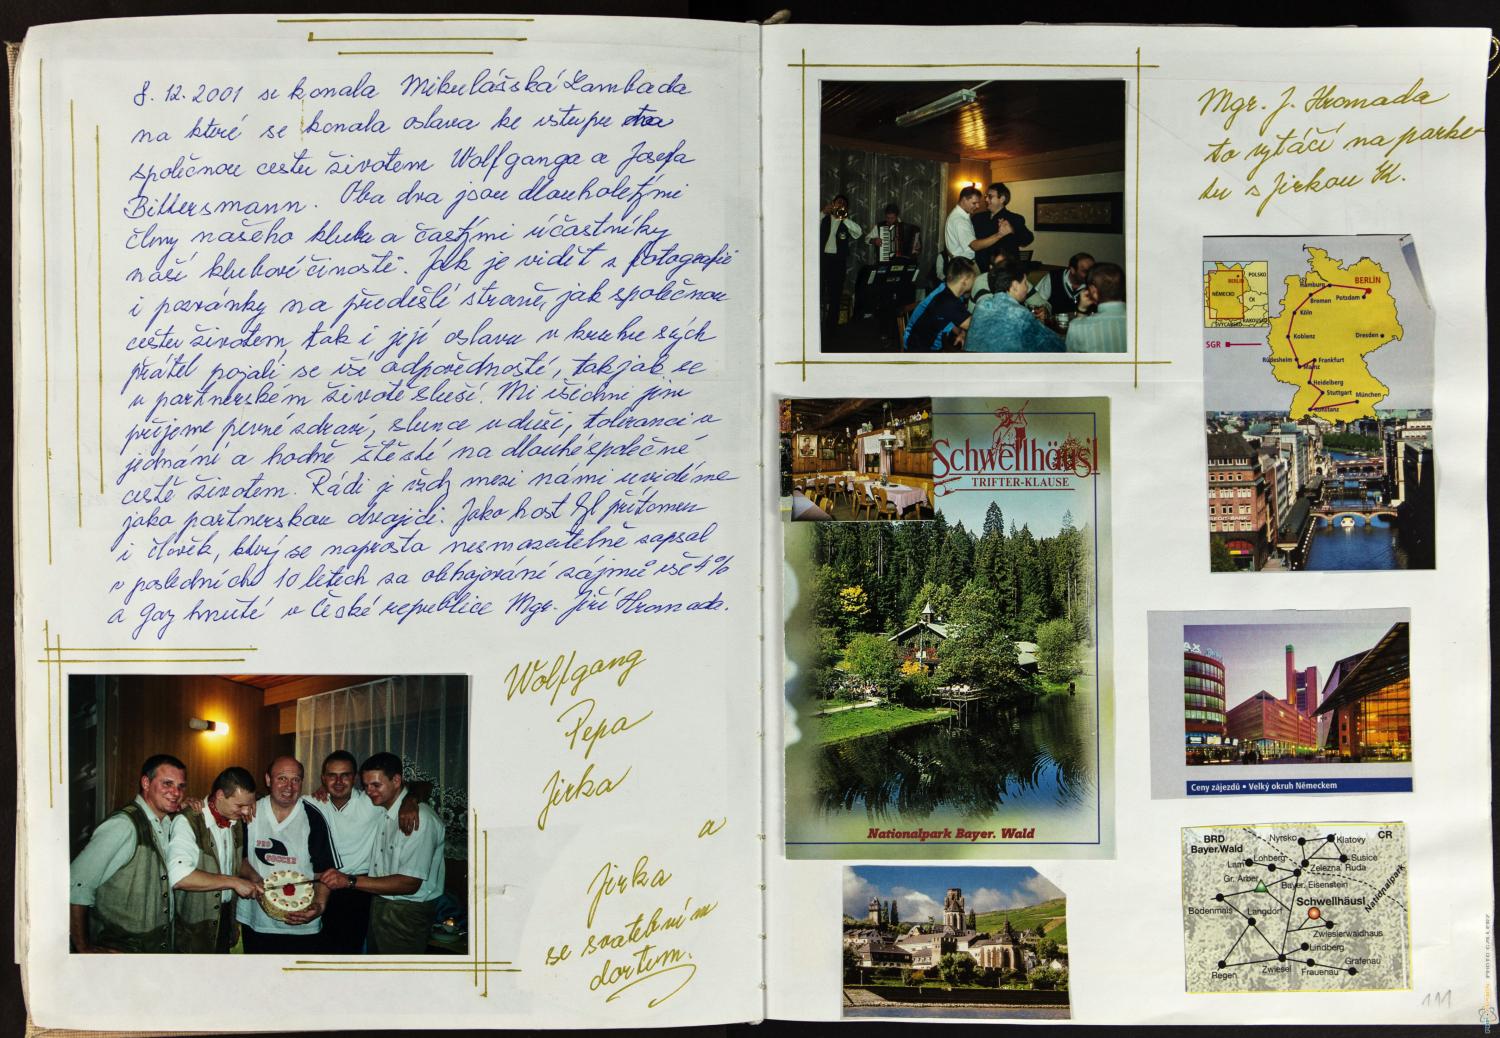 8. 12. 2001 se konala Mikulášská Lambada
na které se konala oslava ke vstupu na
společnou cestu životem Wolfganga a Josefa
Bittersmann. Oba dva jsou dlouholetými
členy našeho klubu a častými účastníky
naší klubové činosti. Jak je vidět z fotografie
i pozvánky na předešlé straně, jak společnou
cestu životem tak i její oslavu v kruhu svých
přátel pojali se vší odpovědností, tak jak se
v partnerském životě sluší. Mi všichni jim
přejeme pevné zdraví, slunce v duši, toleranci v
jednání a hodně štěstí na dlouhé společné
cestě životem. Rádi je vždy mezi námi uvidíme
jako partnerskou dvojici. Jako host byl přítomen
i člověk, který se naprosto nesmazatelně zapsal
v posledních 10 letech za obhajování zájmů vší 4%
a gay hnutí v České republice Mgr. Jiří Hromada.
Wolfgang
Pepa
Jirka
a
Jirka
se svatebním
dortem.
PRO
SOCCER
Mgr. J. Hromada
to vytáčí na parke
tu s Jirkou K.
Schwellhäusl
TRIFTER-KLAUSE
Nationalpark Bayer. Wald
BERLIN
POLSKO
NĚMECKO
ČR
ŠVÝCARSKO
RAKOUSKO
SGR
Hamburg
BERLÍN
Bremen
Potsdam
Köln
Koblenz
Dresden
Rüdesheim
Frankfurt
Mainz
Heidelberg
Stuttgart
München
Konstanz
Ceny zájezdů • Velký okruh Německem
BRD
Bayer.Wald
CR
Nyrsko
Klatovy
Lam
Lohberg
Susice
Zelezna Ruda
Gr. Arber
Bayer. Eisenstein
Nationalpark
Schwellhäusl
Bodenmais
Langdorf
Zwieslerwaldhaus
Lindberg
Regen
Zwiesel
Frauenau
Grafenau
111
PHOTO GALLERY